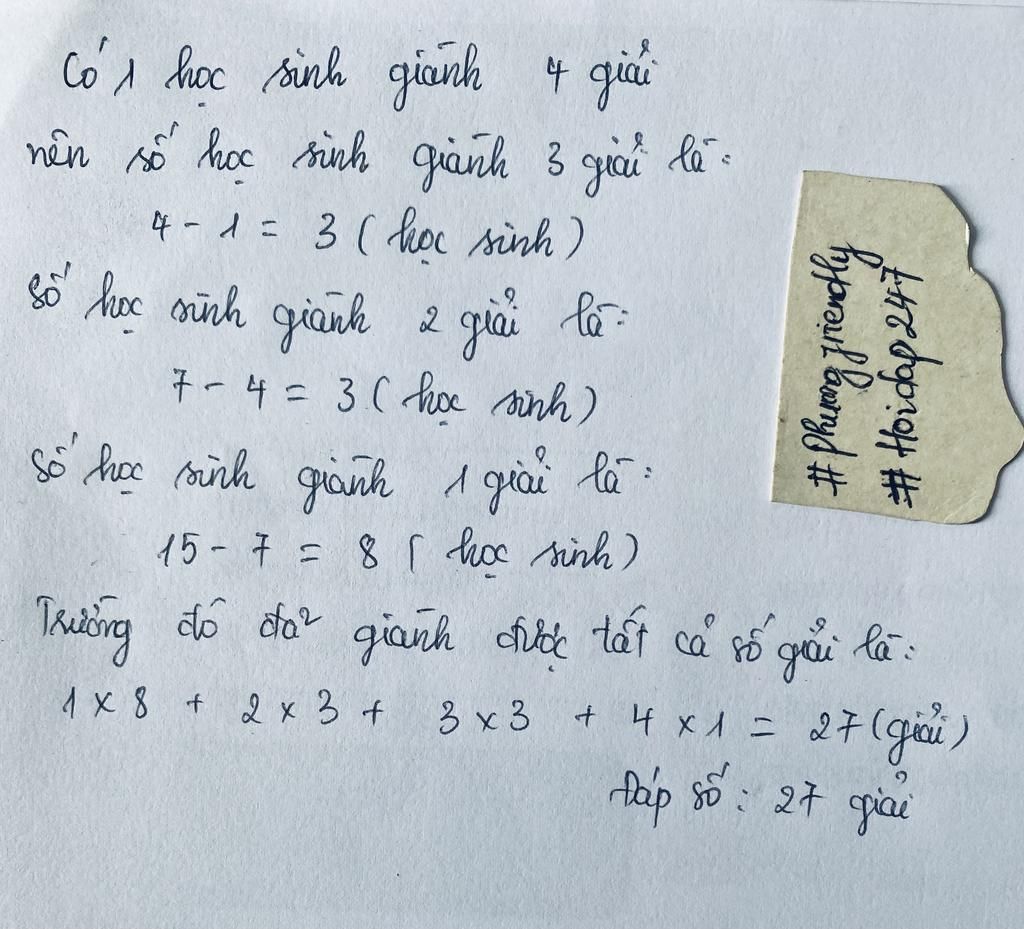 Có 1 học sinh giành 4 giải
nên số học sinh giành 3 giải là:
4 - 1 = 3 ( học sinh )
Số học sinh giành 2 giải là:
7 - 4 = 3 ( học sinh )
Số học sinh giành 1 giải là:
15 - 7 = 8 ( học sinh )
Trường đó đã giành được tất cả số giải là:
1 x 8 + 2 x 3 + 3 x 3 + 4 x 1 = 27 (giải)
Đáp số: 27 giải
#phuongfriendly
#Hoidap247